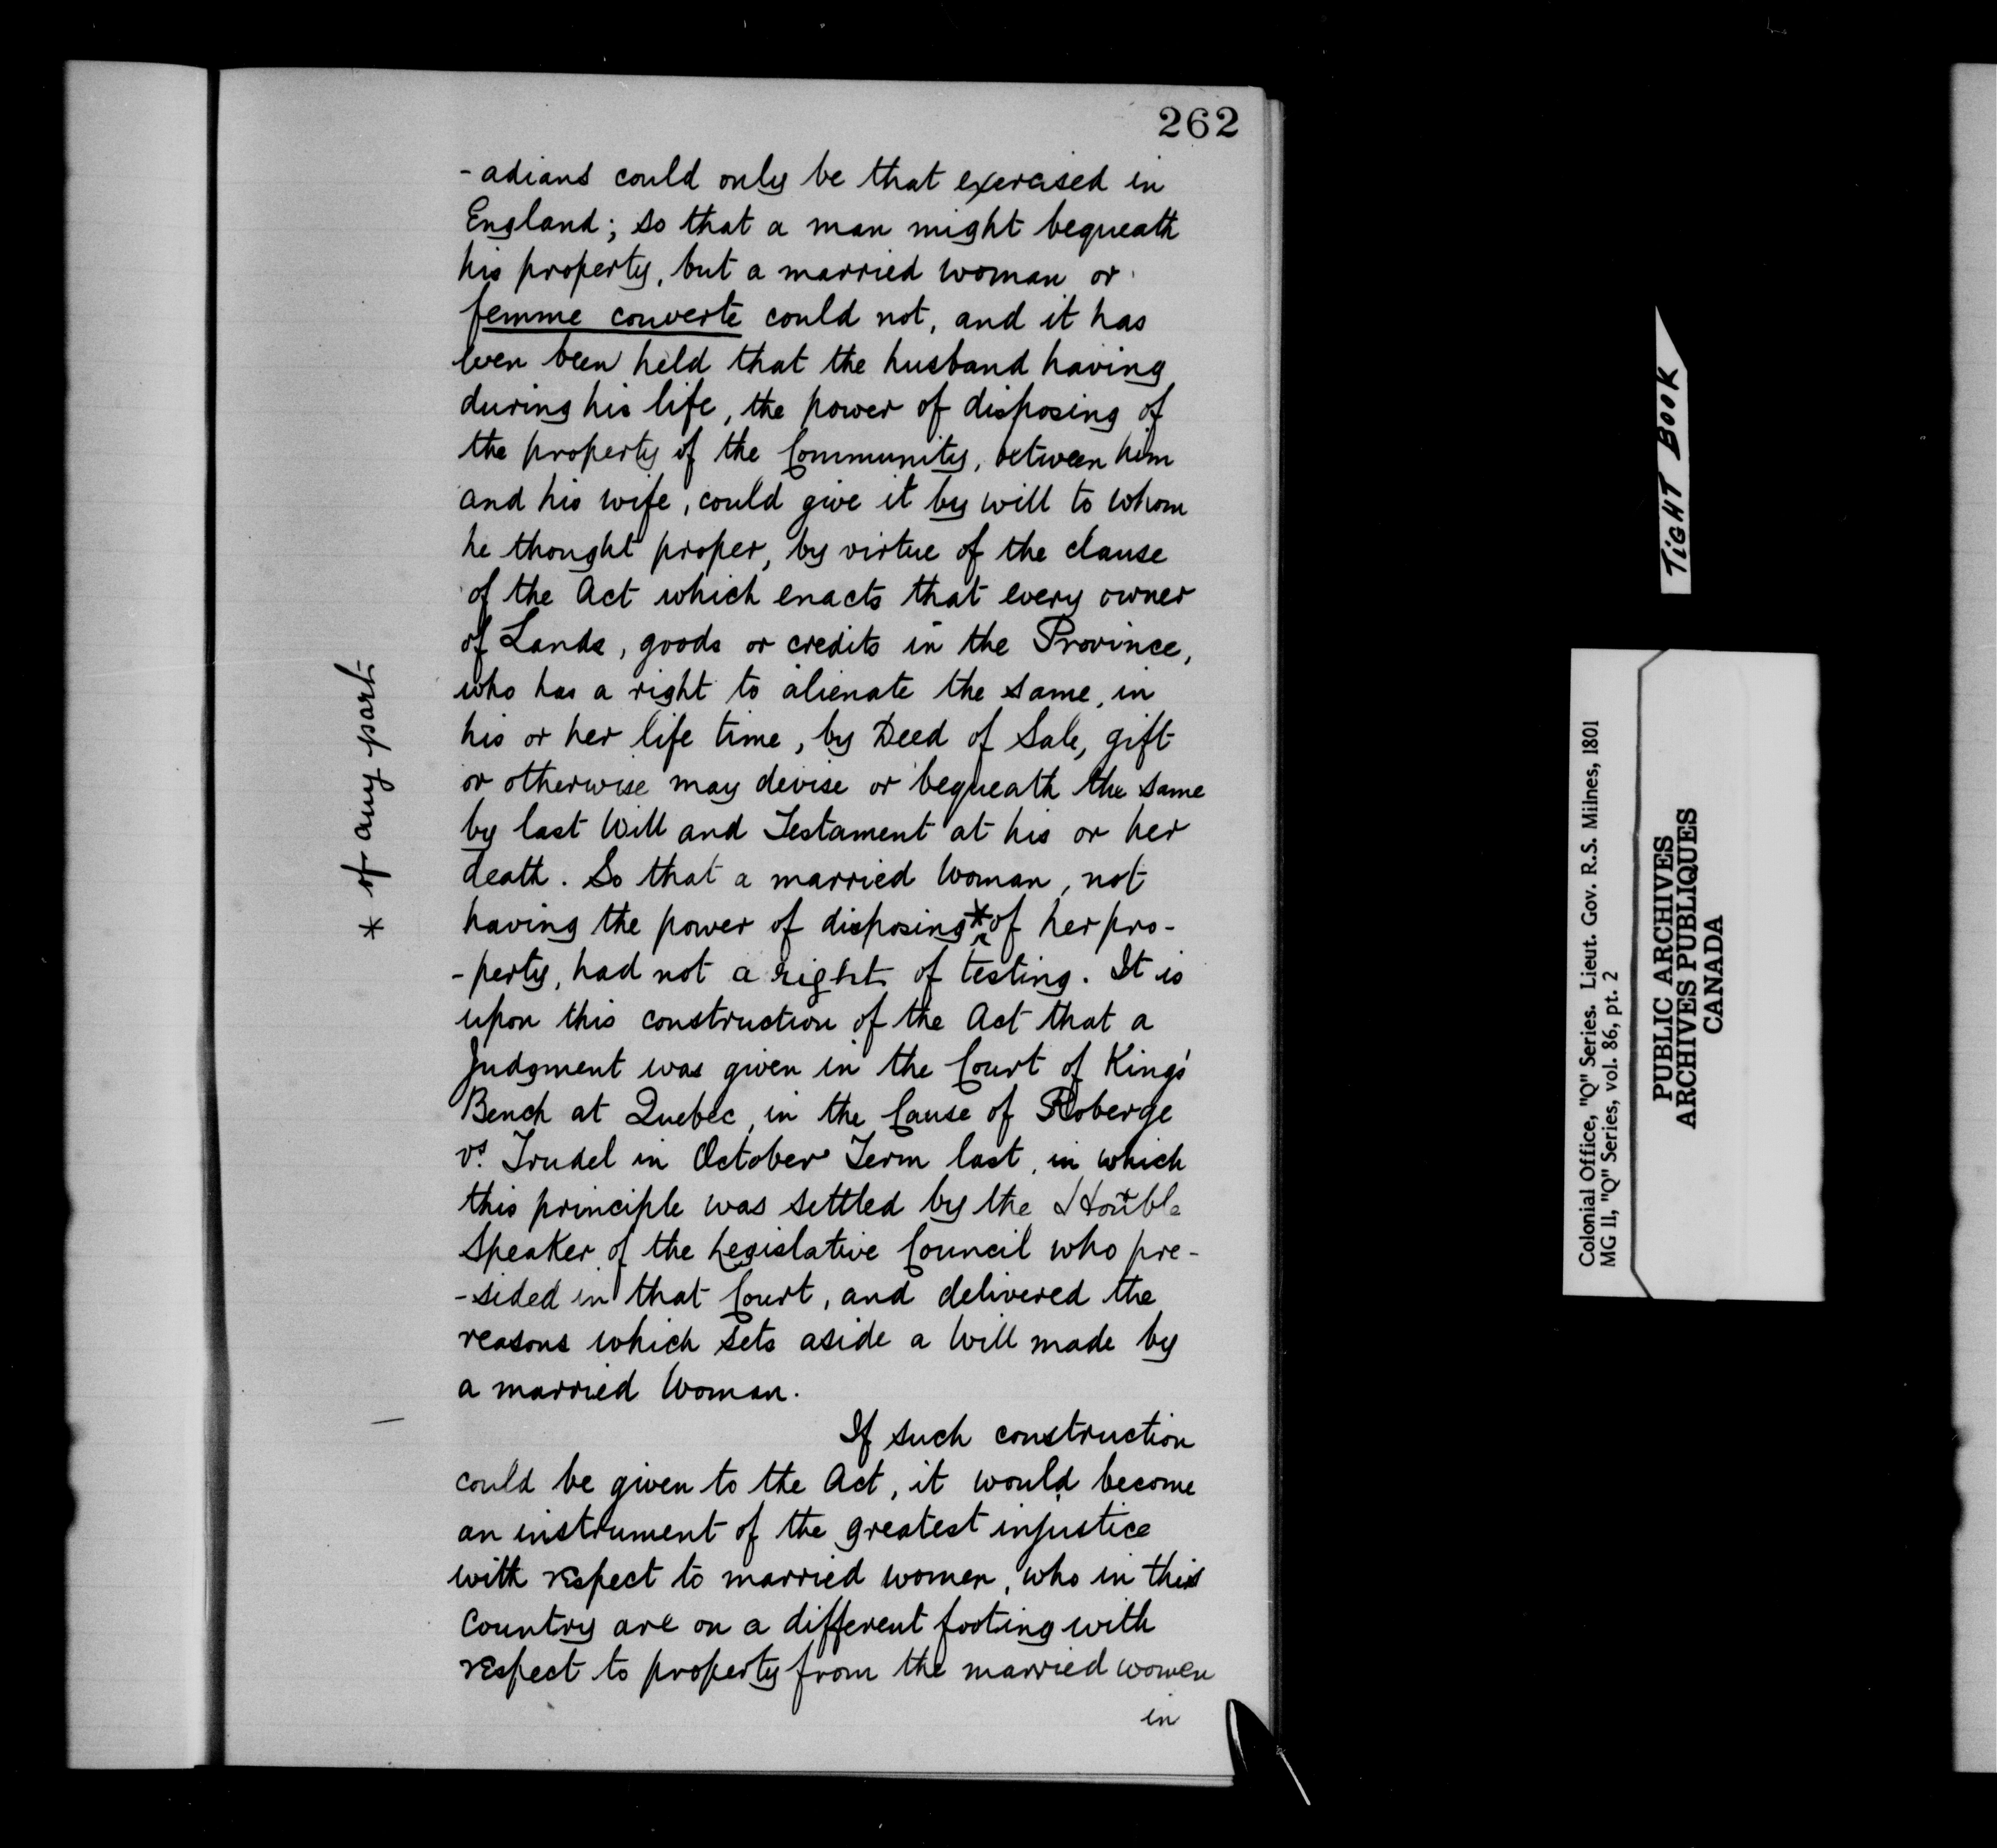 262
- adians could only be that exercised in
England; so that a man might bequeath
his property, but a married woman or
femme converte could not, and it has
even been held that the husband having
during his life, the power of disposing of
the property of the Community, between him
and his wife, could give it by will to whom
he thought proper, by virtue of the clause
of the Act which enacts that every owner
of Lands, goods or credits in the Province,
who has a right to alienate the same, in
his or her life time, by Deed of Sale, gift
or otherwise may devise or bequeath the same
by last Will and Testament at his or her
death. So that a married Woman, not
having the power of disposing * of her pro-
- perty, had not a right of testing. It is
upon this construction of the Act that a
Judgment was given in the Court of Kings'
Bench at Quebec, in the Cause of Roberge
vs. Trudel in October Term last, in which
this principle was settled by the Honble
Speaker of the Legislative Council who pre-
- sided in that Court, and delivered the
reasons which sets aside a Will made by
a married Woman.
If such construction
could be given to the Act, it would become
an instrument of the greatest injustice
with respect to married women, who in this
Country are on a different footing with
respect to property from the married women
in
* of any part
TIGHT BOOK
Colonial Office, "Q" Series. Lieut. Gov. R.S. Milnes, 1801
MG 11, "Q" Series, vol. 86, pt. 2
PUBLIC ARCHIVES
ARCHIVES PUBLIQUES
CANADA